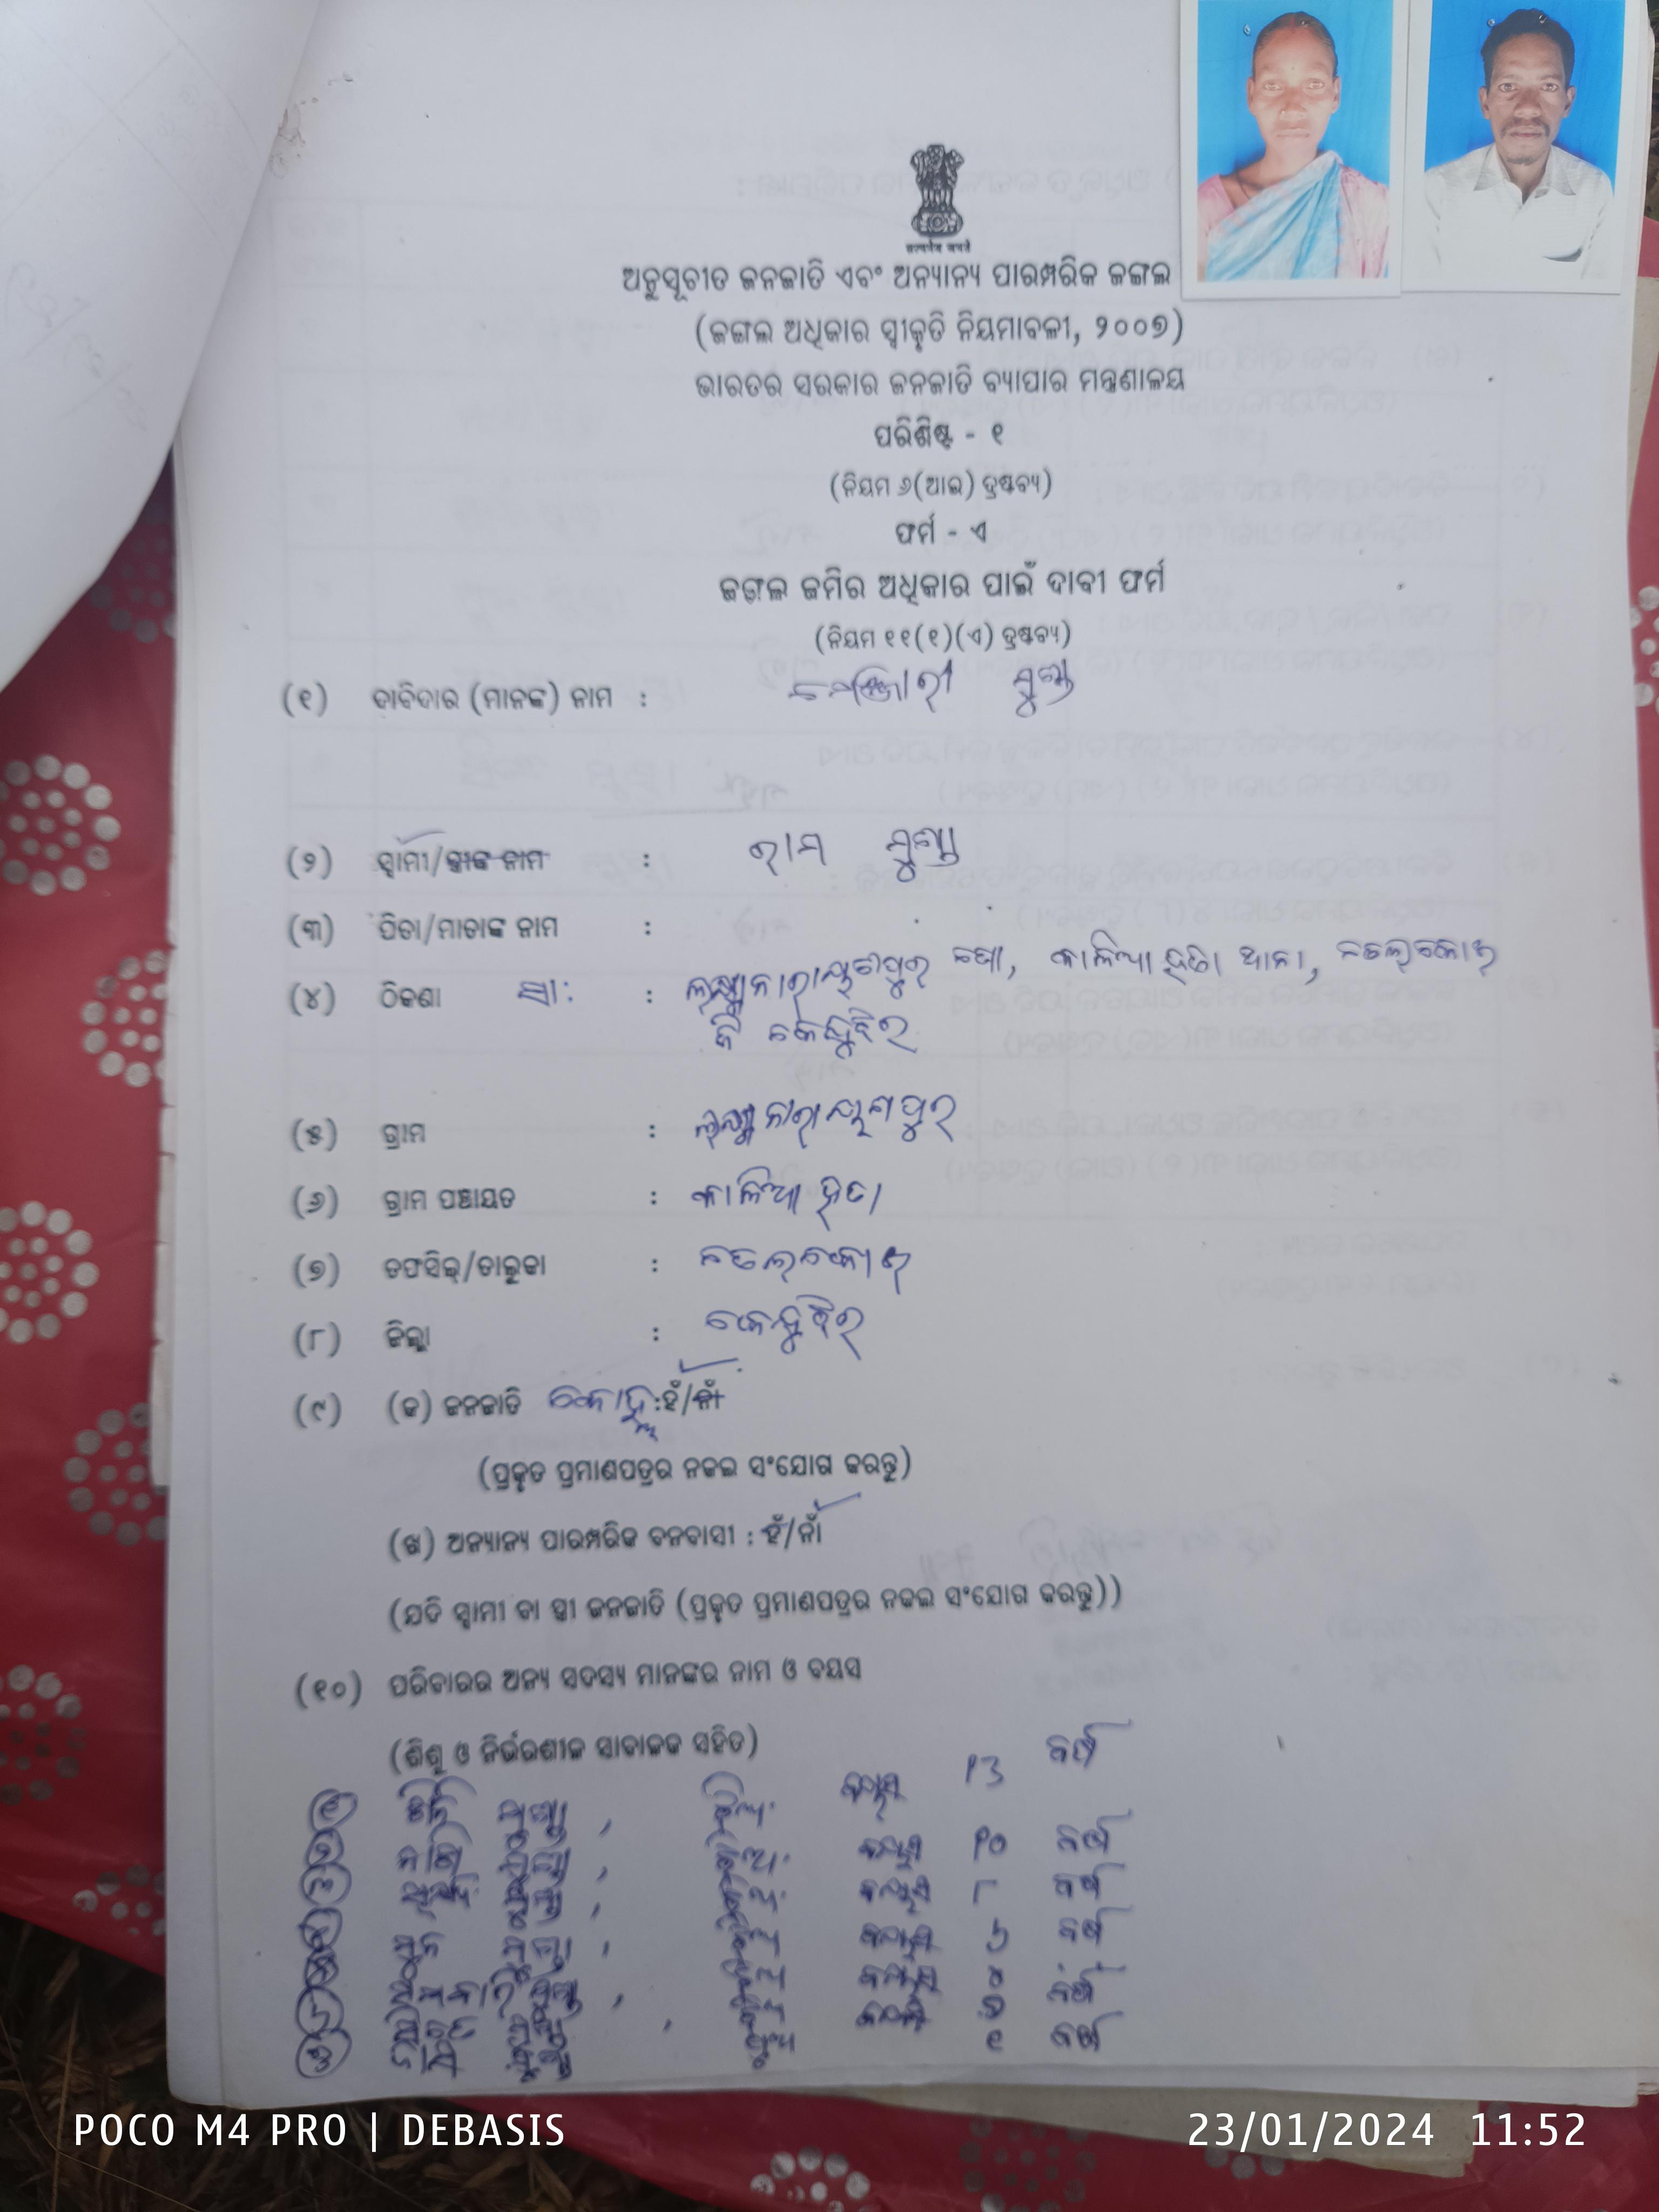 सत्यमेव जयते
ଅନୁସୂଚୀତ ଜନଜାତି ଏବଂ ଅନ୍ୟାନ୍ୟ ପାରମ୍ପରିକ ଜଙ୍ଗଲ
(ଜଙ୍ଗଲ ଅଧିକାର ସ୍ୱୀକୃତି ନିୟମାବଳୀ, ୨୦୦୭)
ଭାରତର ସରକାର ଜନଜାତି ବ୍ୟାପାର ମନ୍ତ୍ରଣାଳୟ
ପରିଶିଷ୍ଟ - ୧
(ନିୟମ ୬(ଆଇ) ଦ୍ରଷ୍ଟବ୍ୟ)
ଫର୍ମ - ଏ
ଜଙ୍ଗଲ ଜମିର ଅଧିକାର ପାଇଁ ଦାବୀ ଫର୍ମ
(ନିୟମ ୧୧(୧)(ଏ) ଦ୍ରଷ୍ଟବ୍ୟ)
(୧) ଦାବିଦାର (ମାନଙ୍କ) ନାମ : ମୁଣ୍ଡା
(୨) ସ୍ୱାମୀ/ସ୍ତ୍ରୀଙ୍କ ନାମ : ରାମ ମୁଣ୍ଡା
(୩) ପିତା/ମାତାଙ୍କ ନାମ :
(୪) ଠିକଣା ସା: : ଲକ୍ଷ୍ମୀନାରାୟଣପୁର ପୋ, କାଳିଆହତା ଥାନା, ତେଲକୋଇ
ଜି କେନ୍ଦୁଝର
(୫) ଗ୍ରାମ : ଲକ୍ଷ୍ମୀନାରାୟଣପୁର
(୬) ଗ୍ରାମ ପଞ୍ଚାୟତ : କାଳିଆହତା
(୭) ତହସିଲ୍/ତାଲୁକା : ତେଲକୋଇ
(୮) ଜିଲ୍ଲା : କେନ୍ଦୁଝର
(୯) (କ) ଜନଜାତି କୋହ୍ଲ :ହଁ/ନାଁ
(ପ୍ରକୃତ ପ୍ରମାଣପତ୍ରର ନକଲ ସଂଯୋଗ କରନ୍ତୁ)
(ଖ) ଅନ୍ୟାନ୍ୟ ପାରମ୍ପରିକ ବନବାସୀ : ହଁ/ନାଁ
(ଯଦି ସ୍ୱାମୀ ବା ସ୍ତ୍ରୀ ଜନଜାତି (ପ୍ରକୃତ ପ୍ରମାଣପତ୍ରର ନକଲ ସଂଯୋଗ କରନ୍ତୁ))
(୧୦) ପରିବାରର ଅନ୍ୟ ସଦସ୍ୟ ମାନଙ୍କର ନାମ ଓ ବୟସ
(ଶିଶୁ ଓ ନିର୍ଭରଶୀଳ ସାବାଳକ ସହିତ)
୧ ମୁଣ୍ଡା, ଝିଅ ବୟସ ୧୩ ବର୍ଷ
୨ ମୁଣ୍ଡା, ଝିଅ ବୟସ ୧୦ ବର୍ଷ
୩ ମୁଣ୍ଡା, ବୟସ ୮ ବର୍ଷ
ମୁଣ୍ଡା, ବୟସ ୬ ବର୍ଷ
ମୁଣ୍ଡା, ବୟସ ୪
ବୟସ ବର୍ଷ
୧ ବର୍ଷ
POCO M4 PRO | DEBASIS
23/01/2024 11:52